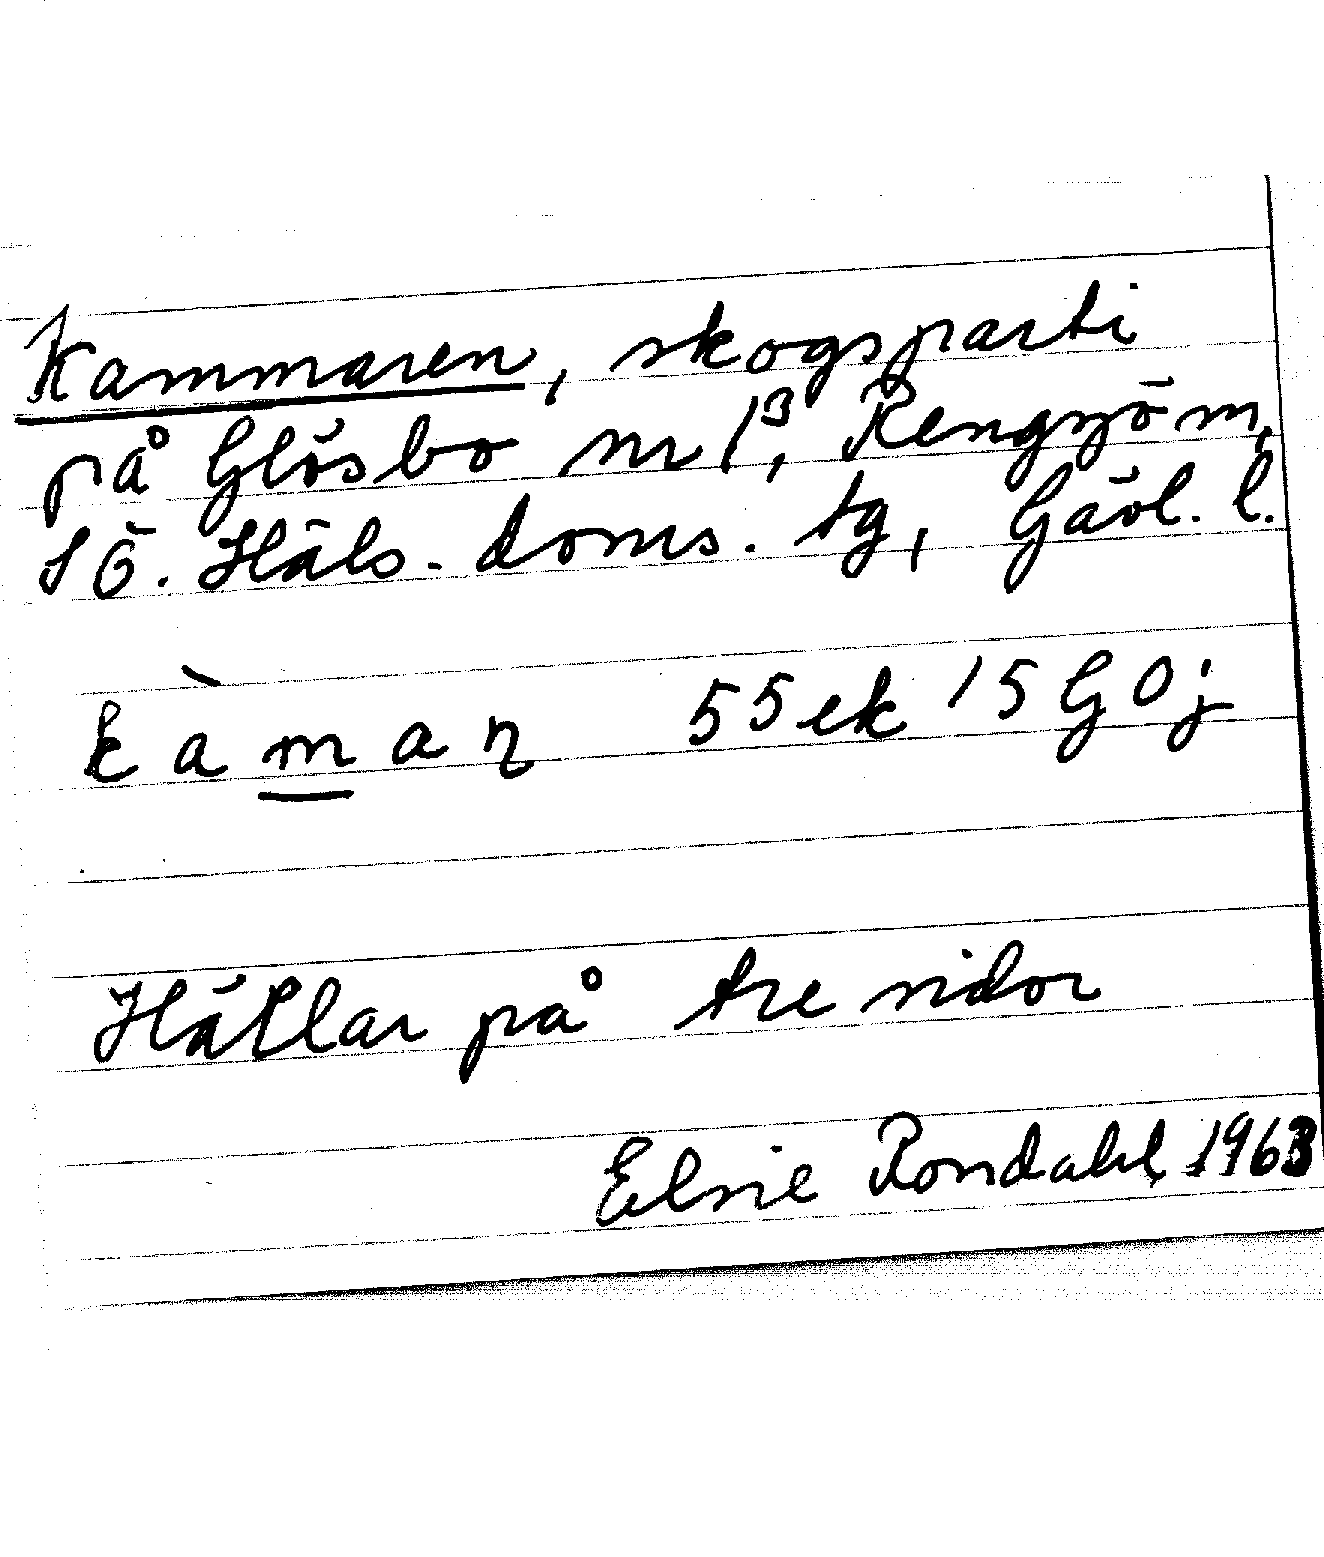 Kammaren, skogsparti
på Glösbo nr 1³, Rengsjö sn,
SÖ. Häls. doms. tg, Gävl. l.
kàman 55ek 15 G0j
Hällar på tre sidor
Elsie Rondahl 1963